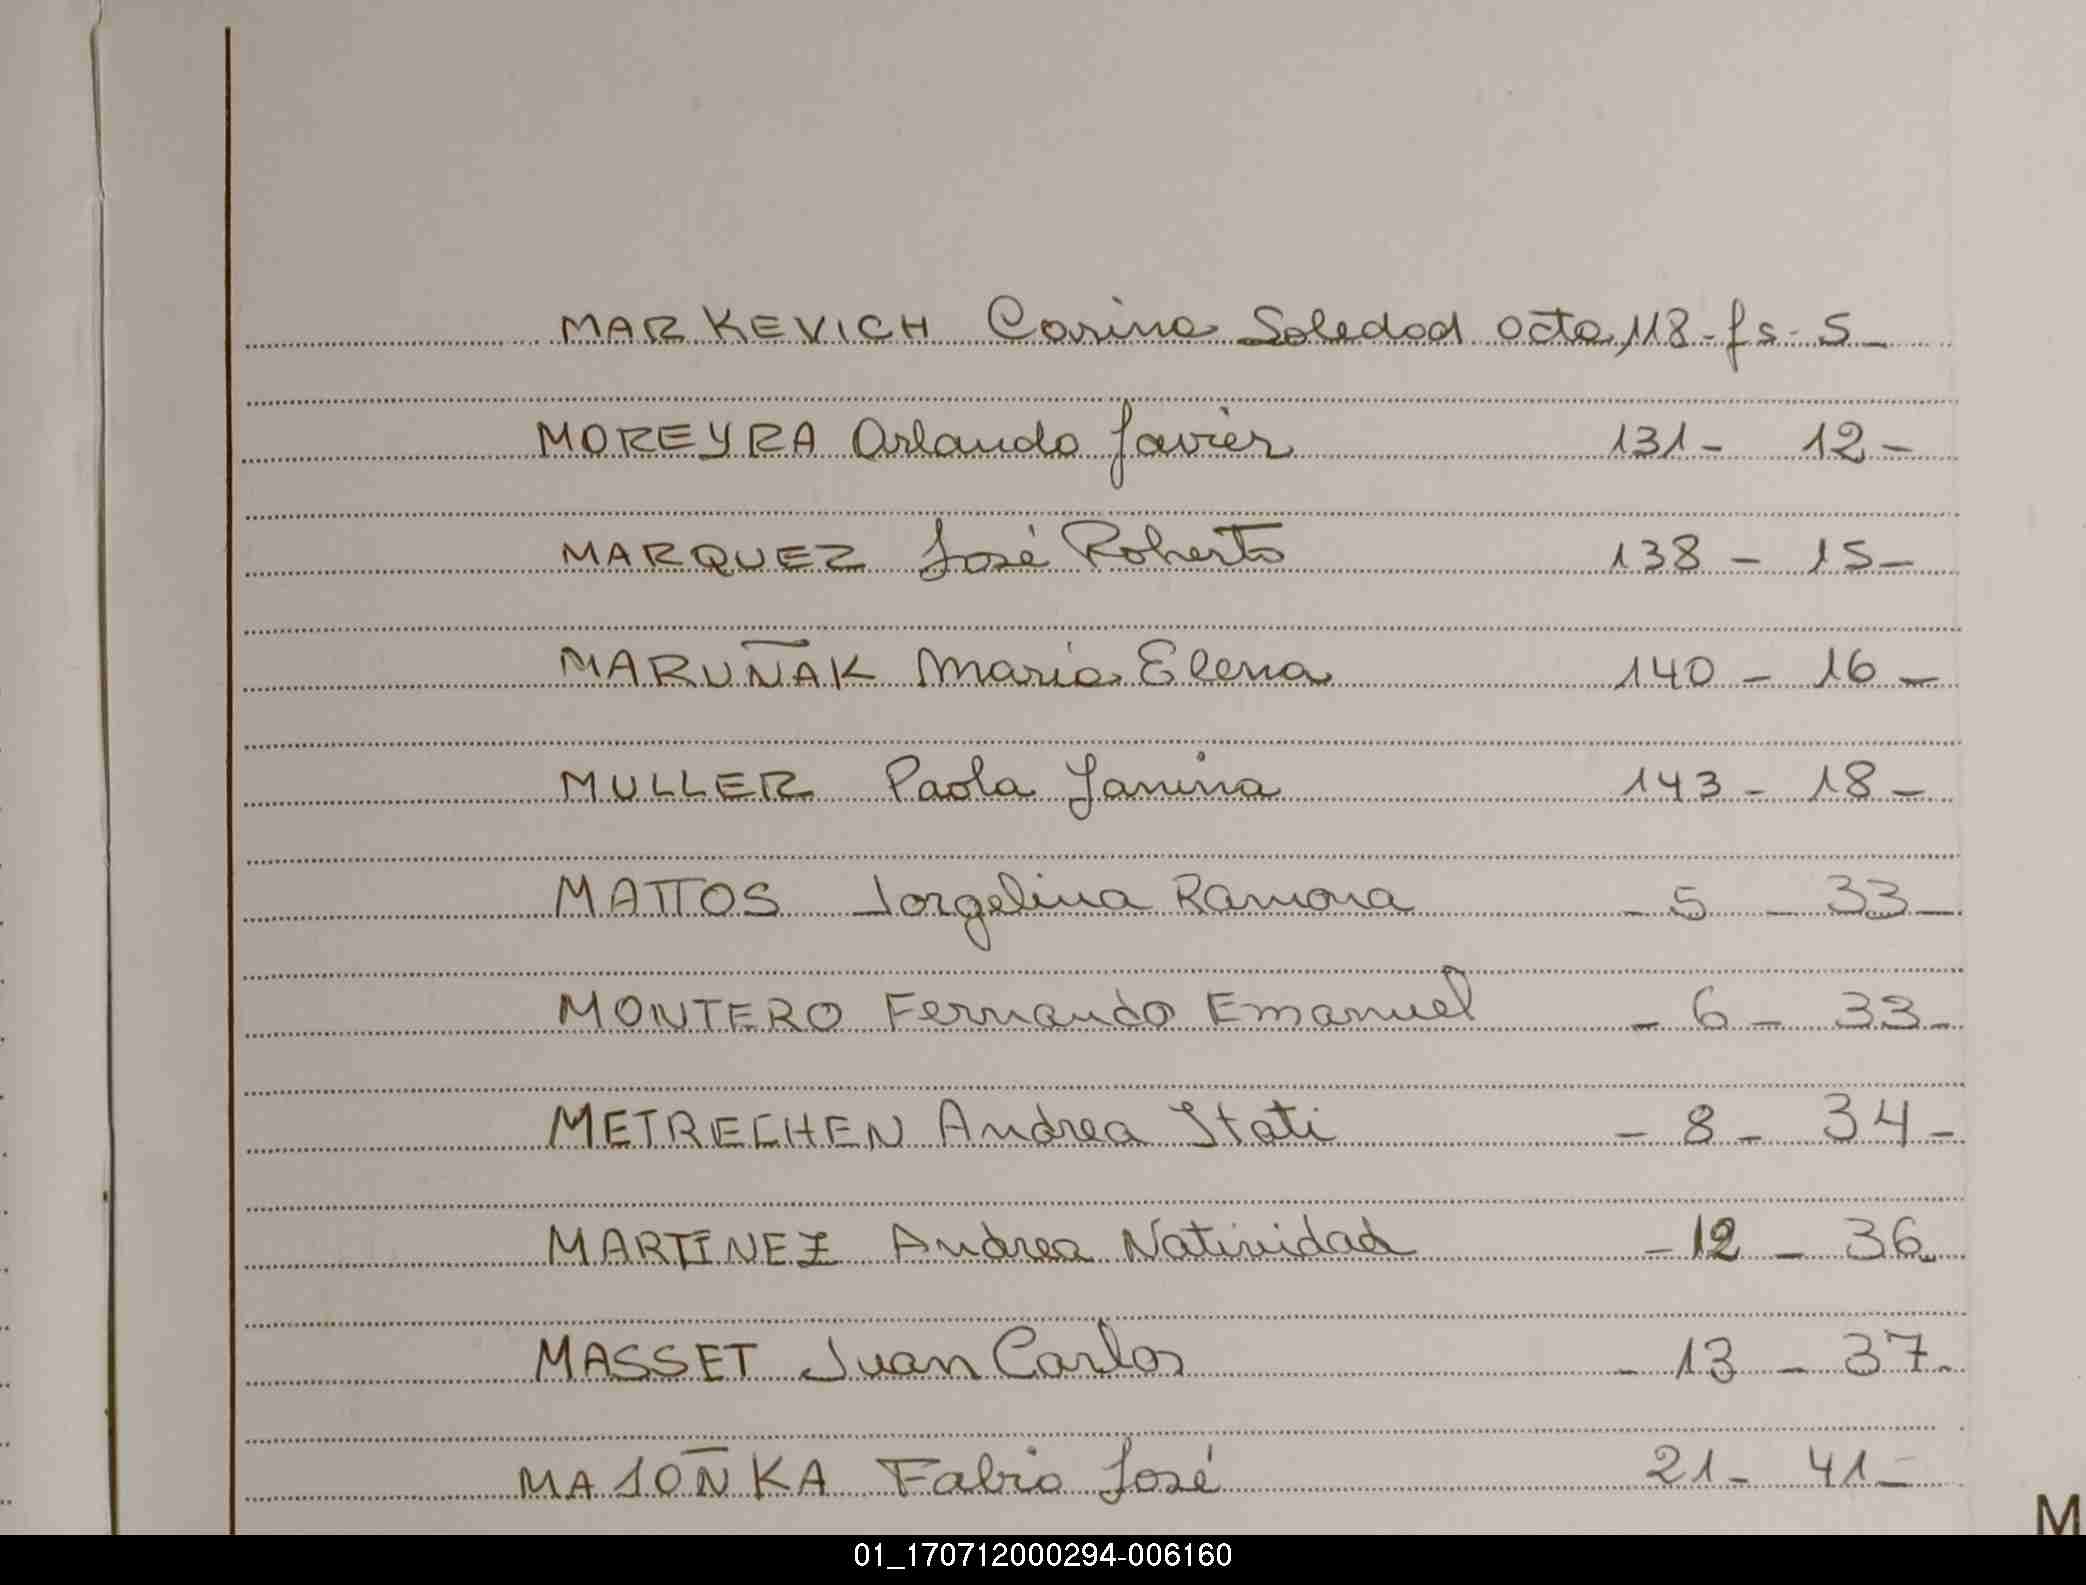 MARKEVICH Carina Soledad acta 118 - fs - 5 -
MOREYRA Orlando Javier 131 - 12 -
MARQUEZ José Roberto 138 - 15 -
MARUÑAK Maria Elena 140 - 16 -
MULLER Paola Janina 143 - 18 -
MATTOS Jorgelina Ramona - 5 - 33 -
MONTERO Fernando Emanuel - 6 - 33 -
METRECHEN Andrea Itati - 8 - 34 -
MARTINEZ Andrea Natividad - 12 - 36
MASSET Juan Carlos - 13 - 37 -
MAJOÑKA Fabio José 21 - 41 -
M
01_170712000294-006160